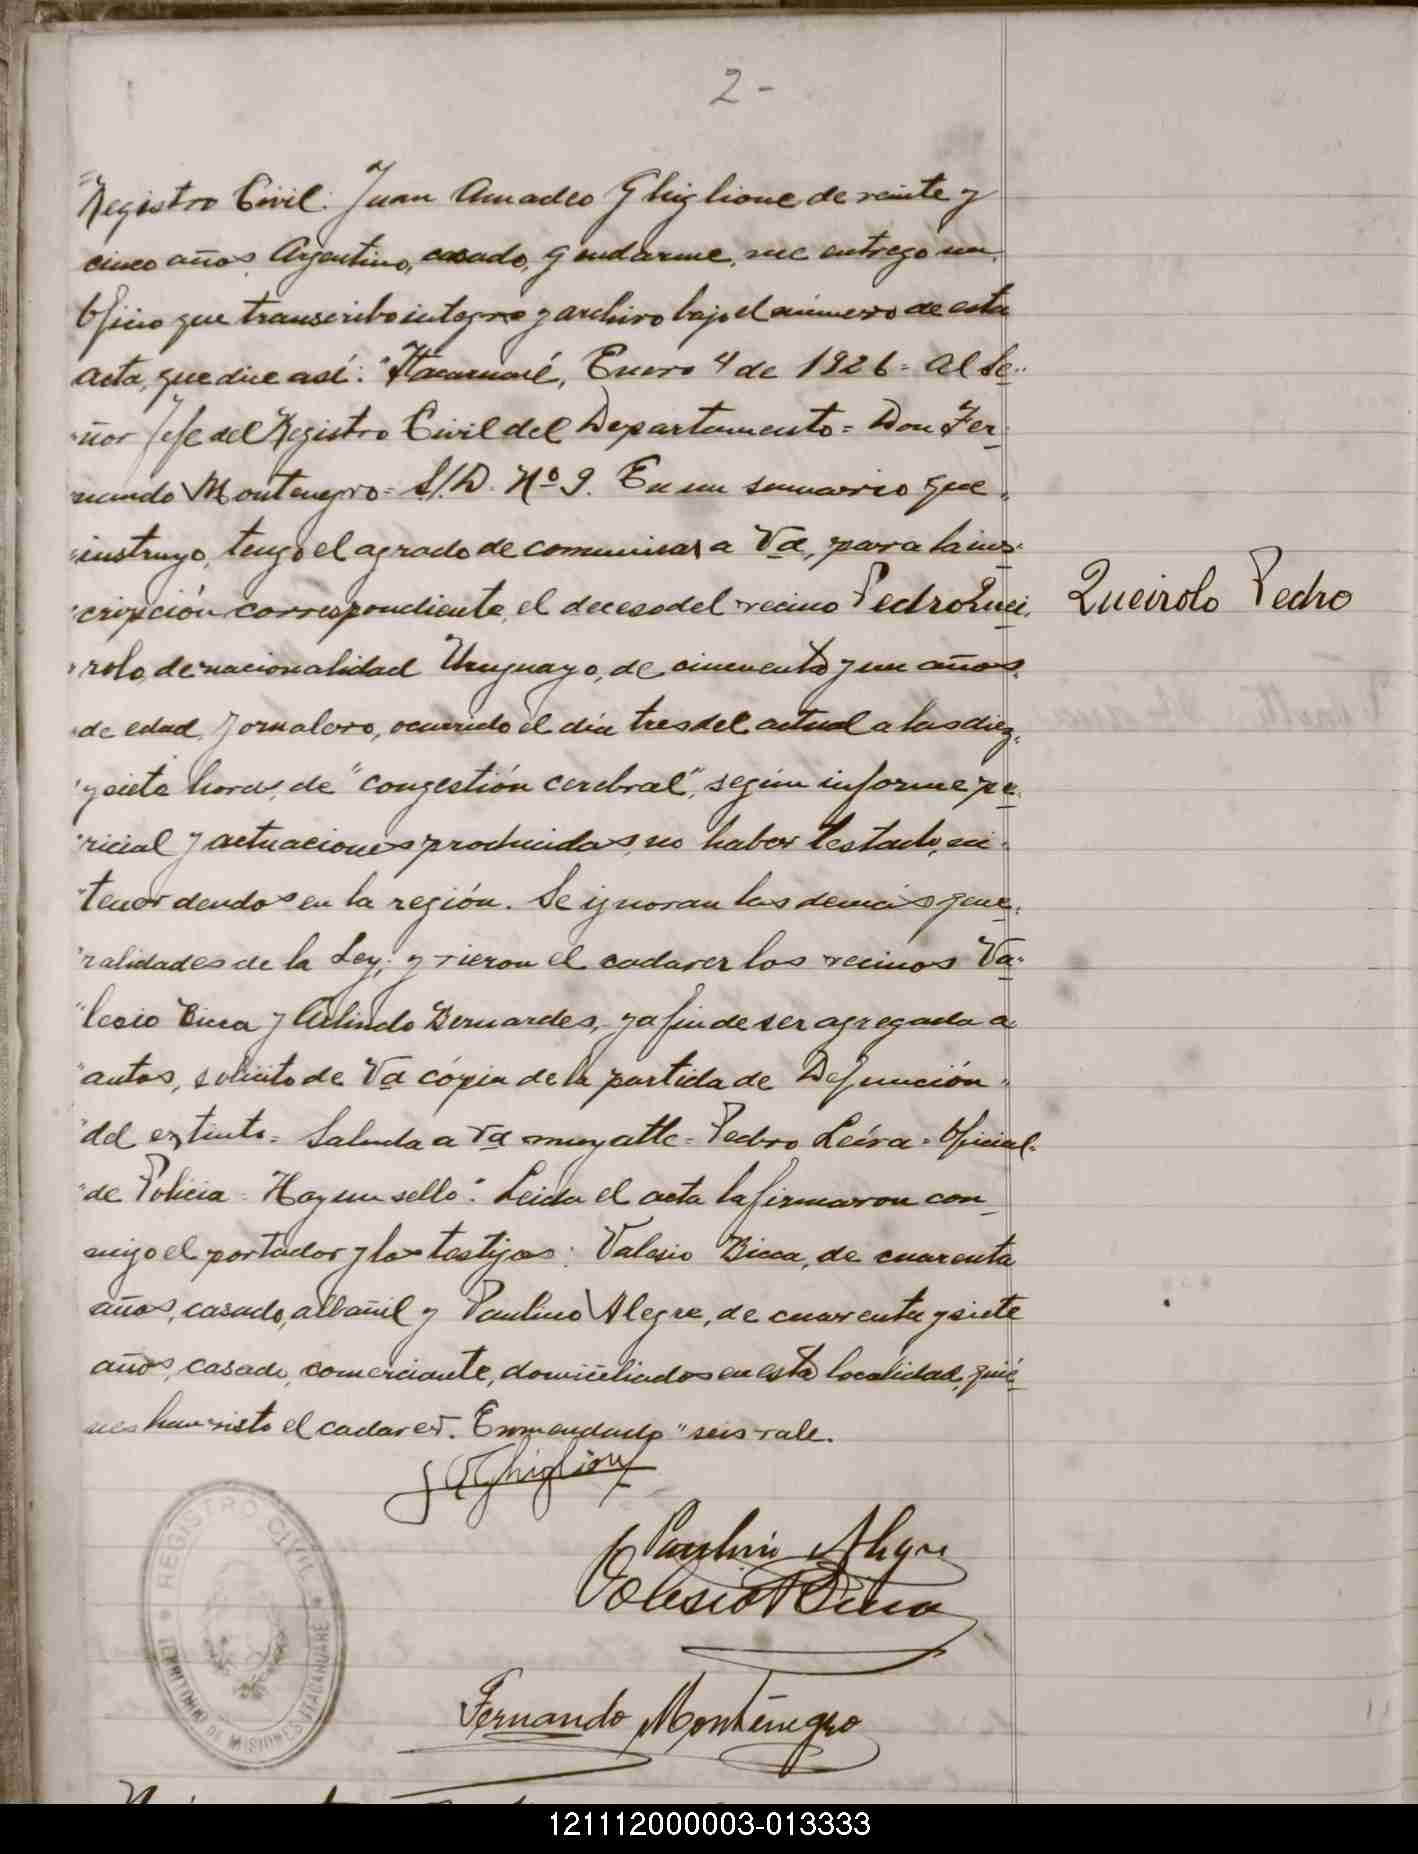 2-
Registro Civil: Juan Amadeo Ghiglione de veinte y
cinco años, Argentino, casado, gendarme, me entrego un
Oficio que transcribo integro y archivo bajo el número de esta
acta, que dice así: "Itacaruaré, Enero 4 de 1926= Al Se-
"ñor Jefe del Registro Civil del Departamento= Don Fer-
nando Montenegro= S/D. Nº 9. En un sumario que
"instruyo, tengo el agrado de comunicar a Vd, para la ins-
"cripción correspondiente, el deceso del vecino Pedro Quei-
Queirolo Pedro
"rolo, de nacionalidad Uruguayo, de cincuenta y un años
"de edad, jornalero, ocurrido el día tres del actual a las diez
"y siete horas, de "congestión cerebral", según informe pe-
"ricial y actuaciones producidas, no haber testado, ni
"tener deudos en la región. Se ignoran las demás gene-
"ralidades de la Ley; y vieron el cadaver los vecinos Va-
"lesio Bicca y Arlindo Bernardes, y a fin de ser agregada a
"autos, solicito de Vd cópia de la partida de Defunción
"del extinto= Saluda a Vd muy atte= Pedro Leiva= Oficial
"de Policia= Hay un sello". Leida el acta la firmaron con-
migo el portador y los testigos: Valesio Bicca, de cuarenta
años, casado, albañil y Paulino Alegre, de cuarenta y siete
años, casado, comerciante, domiciliados en esta localidad, quié-
nes han visto el cadaver. Enmendado "seis vale.
J A Ghiglione
Paulino Alegre
Valesio Bicca
REGISTRO CIVIL
TERRITORIO DE MISIONES ITACARUARE
Fernando Montenegro
121112000003-013333